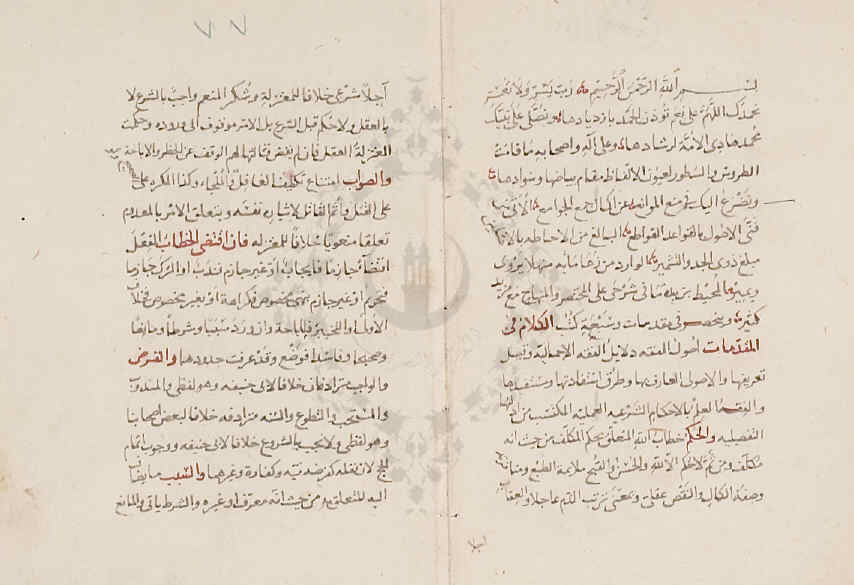 بسم الله الرحمن الرحيم رب يسر ولا تعسر
نحمدك اللهم على نعم يؤذن الحمد بازديادها ونصلي على نبيك
محمد هادي الامة لرشادها وعلى آله واصحابه ما قامت
الطروس والسطور لعيون الالفاظ مقام بياضها وسوادها
ونضرع اليك في منع الموانع عن اكمال جمع الجوامع الآتي من
فني الاصول بالقواعد القواطع البالغ من الاحاطة بالاصلين
مبلغ ذوي الجد والتشمير الوارد من زهاء مائة مصنف منهلا يروي
ويمير المحيط بزبدة ما في شرحي على المختصر والمنهاج مع مزيد
كثير وينحصر في مقدمات وسبعة كتب الكلام في
المقدمات اصول الفقه دلايل الفقه الاجمالية وقيل
معرفتها والاصولي العارف بها وبطرق استفادتها ومستفيدها
والفقه العلم بالاحكام الشرعية العملية المكتسب من ادلتها
التفصيلية والحكم خطاب الله المتعلق بفعل المكلف من حيث انه
مكلف ومن ثم لا حكم الا لله والحسن والقبح بمعنى ملاءمة الطبع ومنافرته
وصفة الكمال والنقص عقلي وبمعنى ترتب الذم عاجلا والعقاب
اجلا
٧٧
آجلا شرعي خلافا للمعتزلة وشكر المنعم واجب بالشرع لا
بالعقل ولا حكم قبل الشرع بل الامر موقوف الى وروده وحكمت
المعتزلة العقل فان لم يقض فثالثها لهم الوقف عن الحظر والاباحة
والصواب امتناع تكليف الغافل والملجاء وكذا المكره على
على القتل واثم القاتل لايثاره نفسه ويتعلق الامر بالمعدوم
تعلقا معنويا خلافا للمعتزله فان اقتضى الخطاب الفعل
اقتضاء جازما فايجاب او غير جازم فندب او الترك جازما
فتحريم او غير جازم بنهي مخصوص فكراهة او بغير مخصوص فخلاف
الاولى او التخيير فاباحة وان ورد سببا وشرطا ومانعا
وصحيحا وفاسدا فوضع وقد عرفت حدودها والفرض
والواجب مترادفان خلافا لابي حنيفه وهو لفظي والمندوب
والمستحب والتطوع والسنه مترادفه خلافا لبعض اصحابنا
وهو لفظي ولا يجب بالشروع خلافا لابي حنيفه ووجوب اتمام
الحج لان نفله كفرضه نية وكفارة وغيرهما والسبب ما يضاف
اليه للتعلق به من حيث انه معرف او غيره والشرط ياتي والمانع